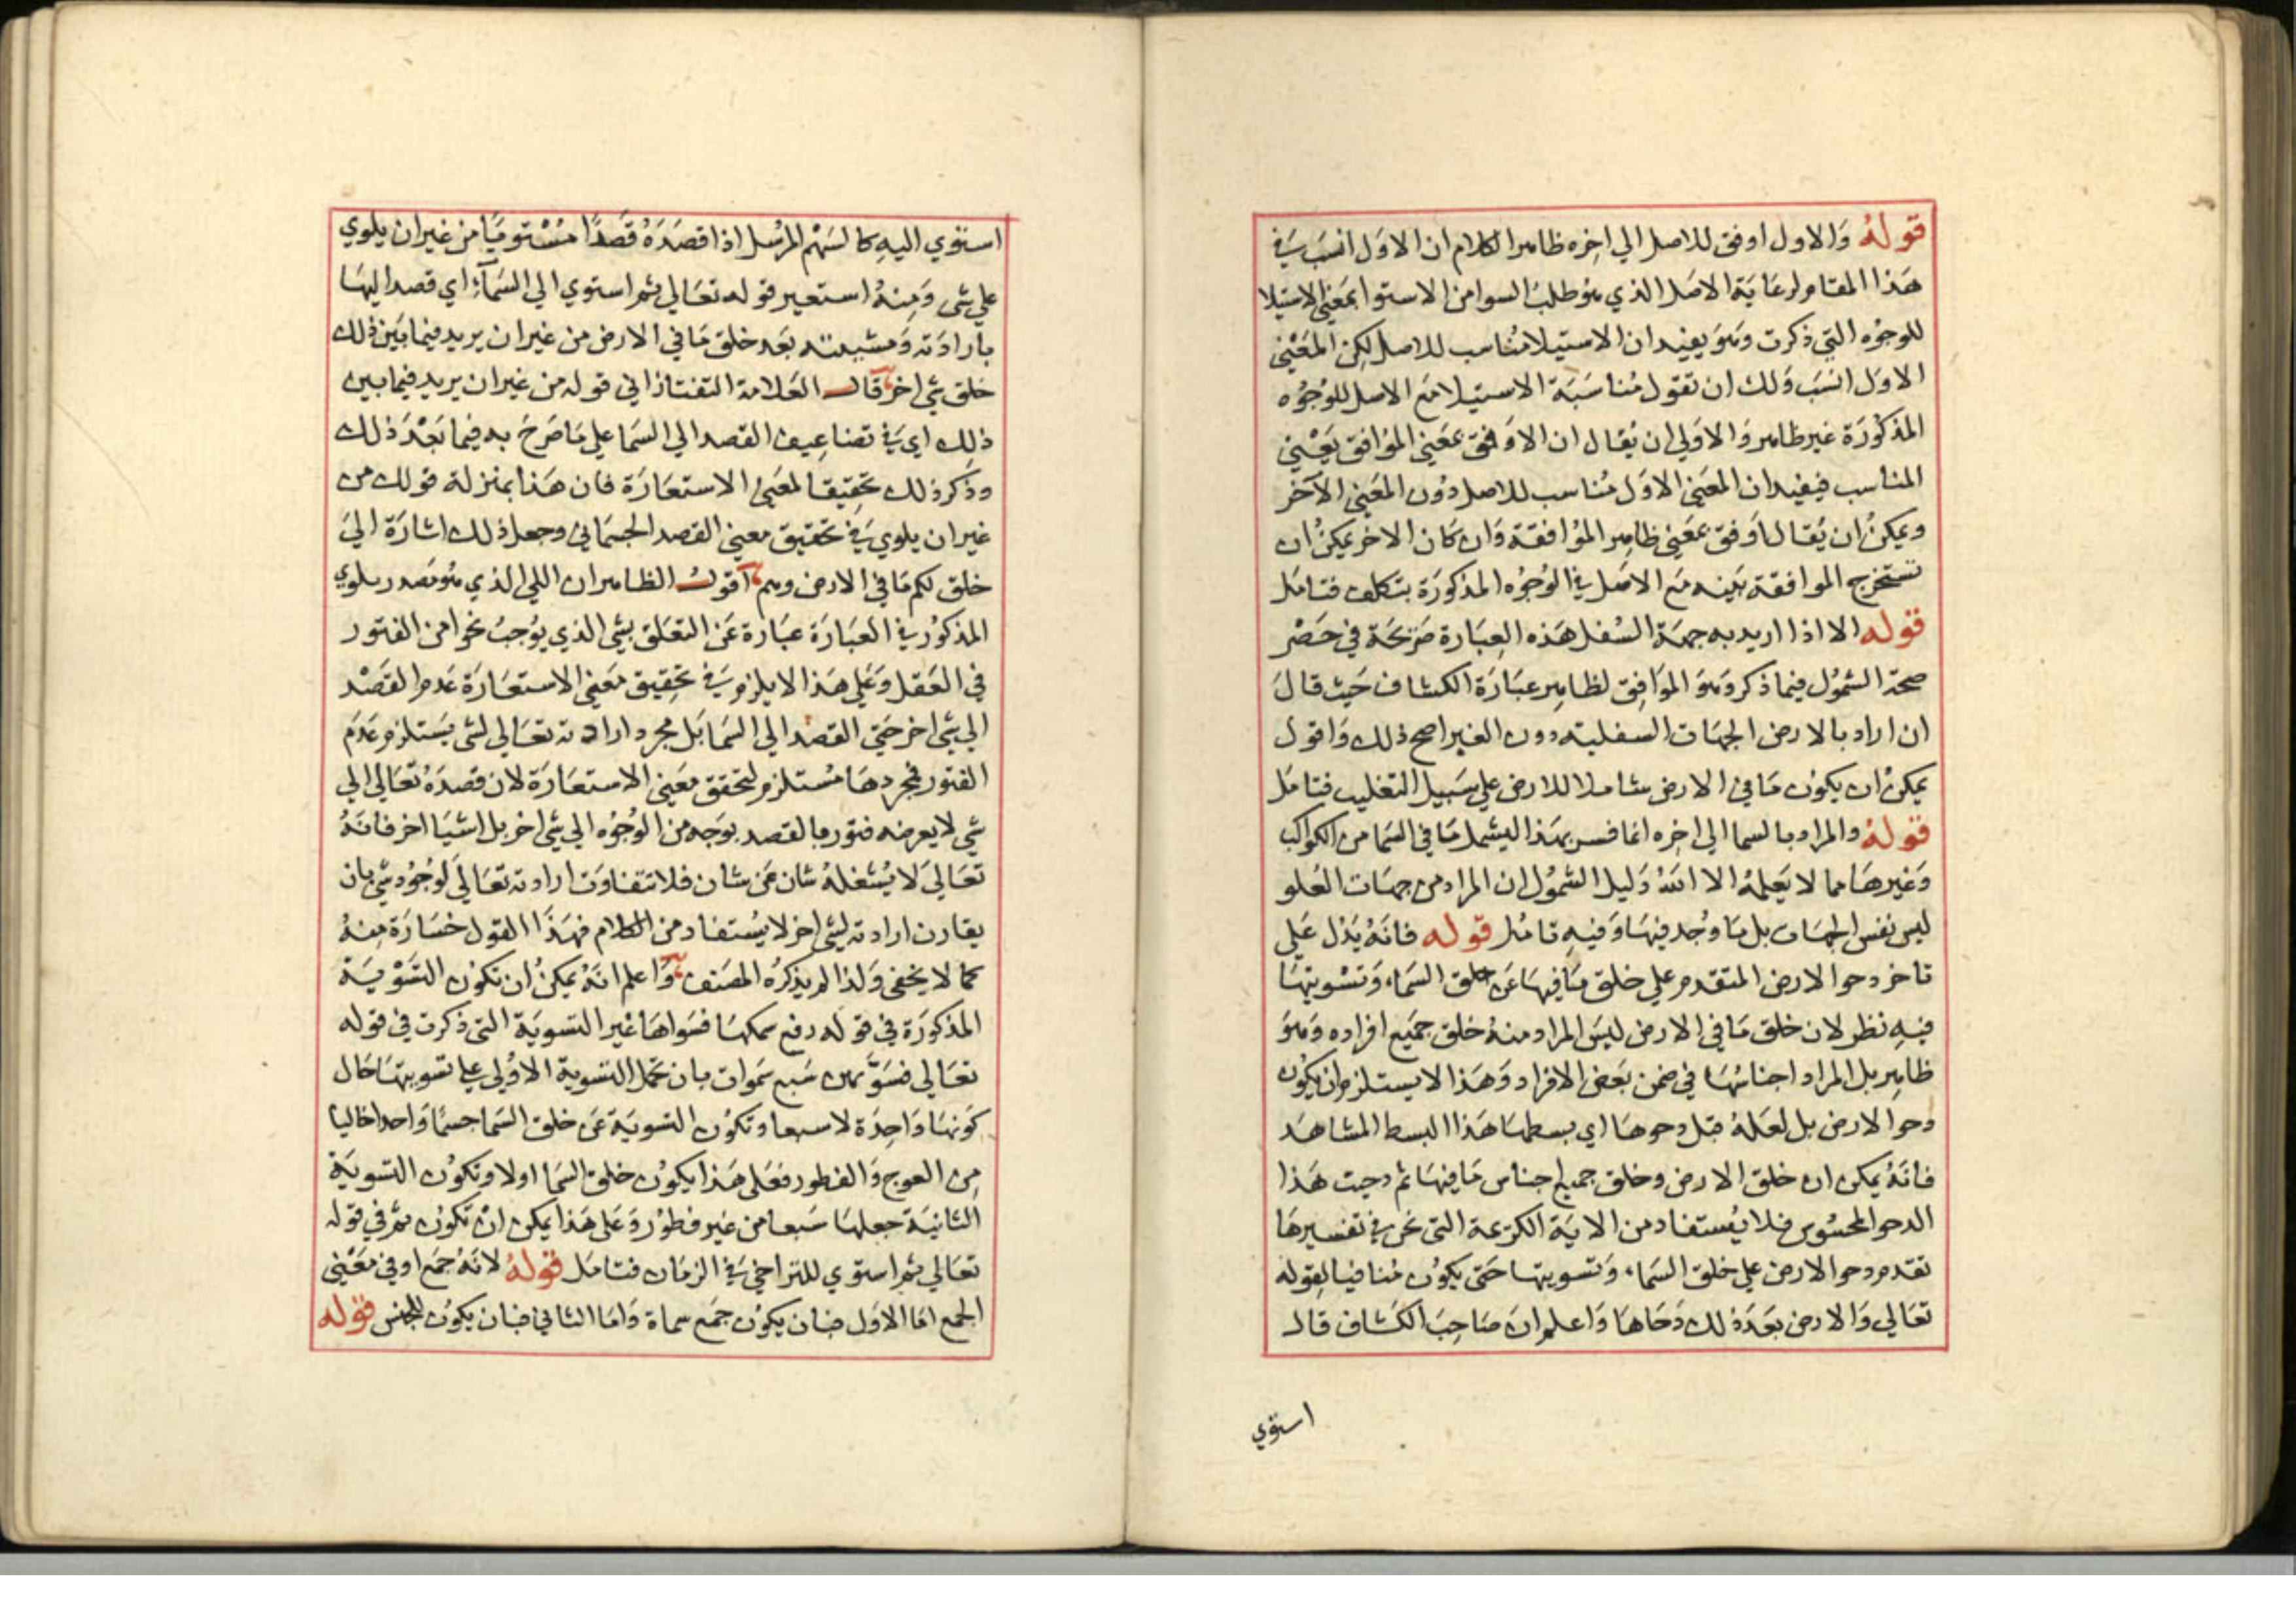 قوله والاول اوفق للاصل الي اخره ظاهر الكلام ان الاول انسب في
هذا المقام لرعاية الاصل الذي هو طلب السوا من الاستوا بمعني الاستيلا
للوجوه التي ذكرت وهو يفيد ان الاستيلا مناسب للاصل لكن المعني
الاول انسب ولك ان تقول مناسبة الاستيلا مع الاصل للوجوه
المذكورة غير ظاهر والاولي ان يقال ان الاوفق بمعني الموافق يعني
المناسب فيفيد ان المعني الاول مناسب للاصل دون المعني الآخر
ويمكن ان يقال اوفق بمعني ظاهر الموافقة وان كان الاخر يمكن ان
تستخرج الموافقة بينه مع الاصل في الوجوه المذكورة بتكلف فتامل
قوله الا اذا اريد به جهة السفل هذه العبارة صريحة في حصر
صحة الشمول فيما ذكر وهو الموافق لظاهر عبارة الكشاف حيث قال
ان اراد بالارض الجهات السفلية دون الغبرا صح ذلك واقول
يمكن ان يكون ما في الارض شاملا للارض علي سبيل التغليب فتامل
قوله والمراد بالسما الي اخره انما فسر بهذا ليشمل ما في السما من الكواكب
وغيرها مما لا يعلمه الا الله دليل الشمول ان المراد من جهات العلو
ليس نفس الجهات بل ما وجد فيها وفيه تامل قوله فانه يدل علي
تاخر دحو الارض المتقدم علي خلق ما فيها عن خلق السماء وتسويتها
فيه نظر لان خلق ما في الارض ليس المراد منه خلق جميع افراده وهو
ظاهر بل المراد اجناسها في ضمن بعض الافراد وهذا لا يستلزم ان يكون
دحو الارض بل لعله قبل دحوها اي بسطها هذا البسط المشاهد
فانه يمكن ان خلق الارض وخلق جميع اجناس ما فيها ثم دحيت هذا
الدحو المحسوس فلا يستفاد من الاية الكريمة التي نحن في تفسيرها
تقدم دحو الارض علي خلق السماء وتسويتها حتي يكون منافيا لقوله
تعالي والارض بعد ذلك دحاها واعلم ان صاحب الكشاف قال
استوي
استوي اليه كالسهم المرسل اذا قصده قصدا مستويا من غير ان يلوي
علي شي ومنه استعير قوله تعالي ثم استوي الي السمآء اي قصد اليها
بارادته ومشيئته بعد خلق ما في الارض من غير ان يريد فيما بين ذلك
خلق شي اخر قال العلامة التفتازاني قوله من غير ان يريد فيما بين
ذلك اي في تضاعيف القصد الي السما علي ما صرح به فيما بعد ذلك
وذكر ذلك تحقيقا لمعني الاستعارة فان هذا بمنزلة قولك من
غير ان يلوي في تحقيق معني القصد الجسماني وجعل ذلك اشارة الي
خلق لكم ما في الارض وهم اقول الظاهر ان اللي الذي هو مصدر يلوي
المذكور في العبارة عبارة عن التعلق بشي الذي يوجب نحوا من الفتور
في العقل وعلي هذا لا يلزم في تحقيق معني الاستعارة عدم القصد
الي شي اخر حتي القصد الي السما بل مجرد ارادته تعالي لشي يستلزم عدم
الفتور فمجردها مستلزم لتحقق معني الاستعارة لان قصده تعالي الي
شي لا يعرضه فتور ما لقصد بوجه من الوجوه الي شي اخر بل اشيا اخر فانه
تعالي لا يشغله شان عن شان فلا تتفاوت ارادته تعالي لوجود شي بان
يقارن ارادته لشي اخر لا يستفاد من الكلام فهذا القول خسارة منه
كما لا يخفي ولذا لم يذكره المصنف واعلم انه يمكن ان تكون التسوية
المذكورة في قوله رفع سمكها فسواها غير التسوية التي ذكرت في قوله
تعالي فسوّهن سبع سموات بان تحمل التسوية الاولي علي تسويتها حال
كونها واحدة لا سبعا وتكون التسوية عن خلق السما جسما واحدا خاليا
من العوج والفطور فعلي هذا يكون خلق السما اولا وتكون التسوية
الثانية جعلها سبعا من غير فطور وعلي هذا يمكن ان تكون ثم في قوله
تعالي ثم استوي للتراخي في الزمان فتامل قوله لانه جمع او في معني
الجمع اما الاول فبان يكون جمع سماة واما الثاني فبان يكون للجنس قوله